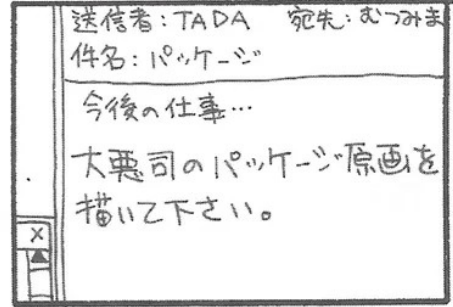 送信者：TADA　宛先：むつみま
件名：パッケージ
今後の仕事…
大悪司のパッケージ原画を
描いて下さい。
×